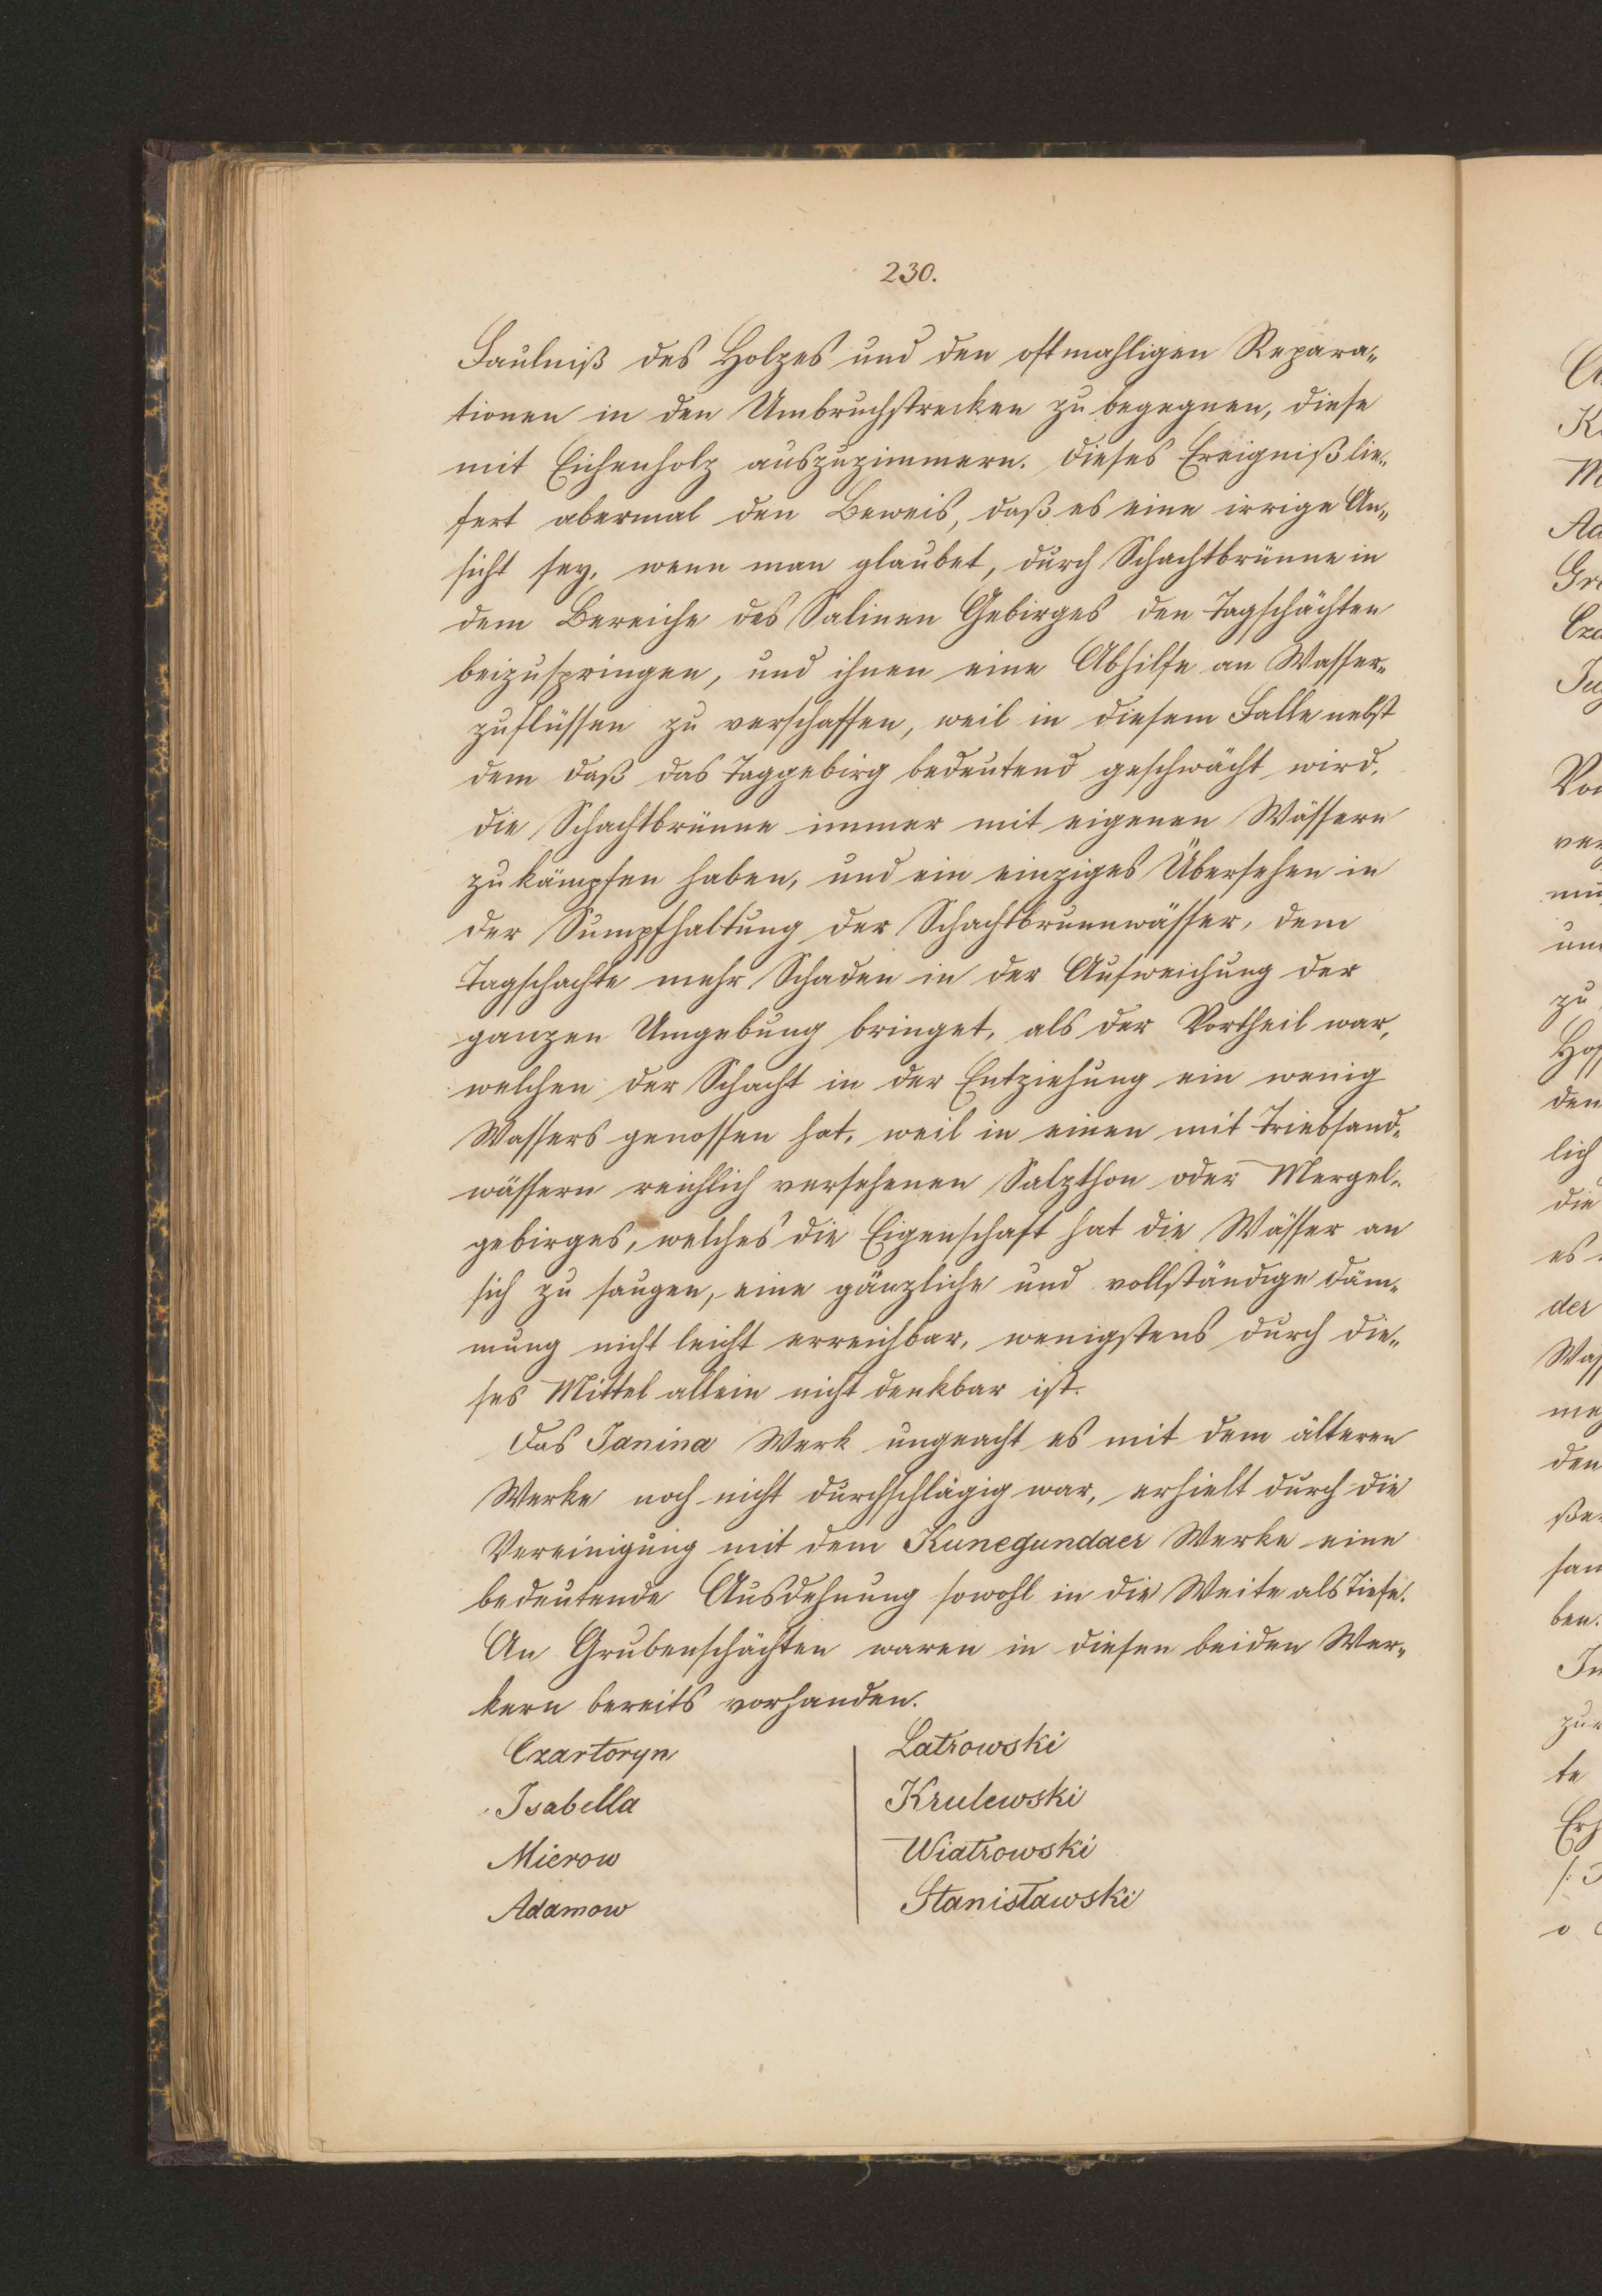 230.
Faulniß des Holzes und den oftmahligen Repara„
tionen in den Umbruchstrecken zu begegnen, diese
mit Eichenholz auszuzimmern. Dieses Ereigniß lie„
fert abermal den Beweis, daß es eine irrige An„
sicht sey, wenn man glaubet, durch Schachtbrünne in
dem Bereiche des Salinen Gebirges den Tagschächten
beizuspringen, und ihnen eine Abhilfe an Wasser„
zuflüssen zu verschaffen, weil in diesem Falle nebst
dem daß das Taggebirg bedeutend geschwächt wird,
die Schachtbrünne immer mit eigenen Wässern
zu kämpfen haben, und ein einziges Übersehen in
der Sumpfhaltung der Schachtbrunnwässer, dem
Tagschachte mehr Schaden in der Aufweichung der
ganzen Umgebung bringet, als der Vortheil war,
welchen der Schacht in der Entziehung ein wenig
Wassers genossen hat, weil in einen mit Triebsand„
wässern reichlich versehenen Salzthon oder Mergel„
gebirges, welches die Eigenschaft hat die Wässer an
sich zu saugen, eine gänzliche und vollständige Däm„
mung nicht leicht erreichbar, wenigstens durch die„
ses Mittel allein nicht denkbar ist.
Das Janina Werk ungeacht es mit dem älteren
Werke noch nicht durchschlägig war, erhielt durch die
Vereinigung mit dem Kunegundaer Werke eine
bedeutende Ausdehnung sowohl in die Weite als Tiefe.
An Grubenschächten waren in diesen beiden Wer„
kern bereits vorhanden.
Czartoryn
Isabella
Mierow
Adamow
Latrowski
Krulewski
Wiatrowski
Stanisławski